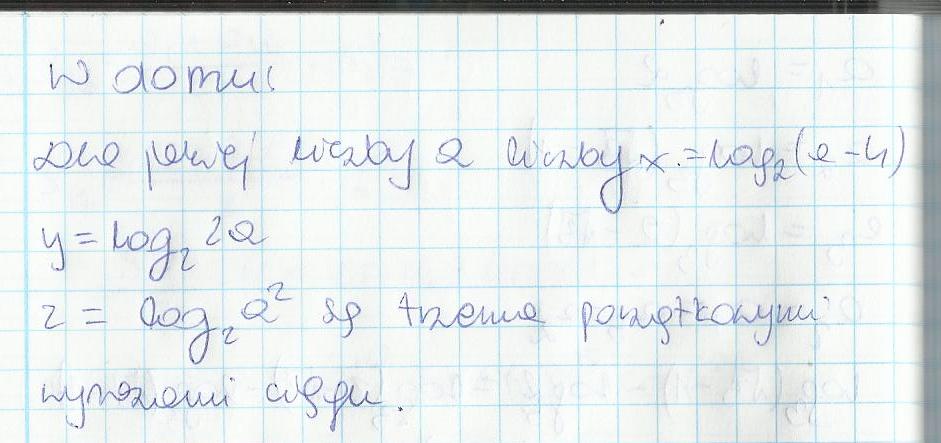 W domu:
Dla jakiej liczby a liczby x = log₂(a-4)
y = log₂ 2a
z = log₂ a² są trzema początkowymi
wyrazami ciągu.